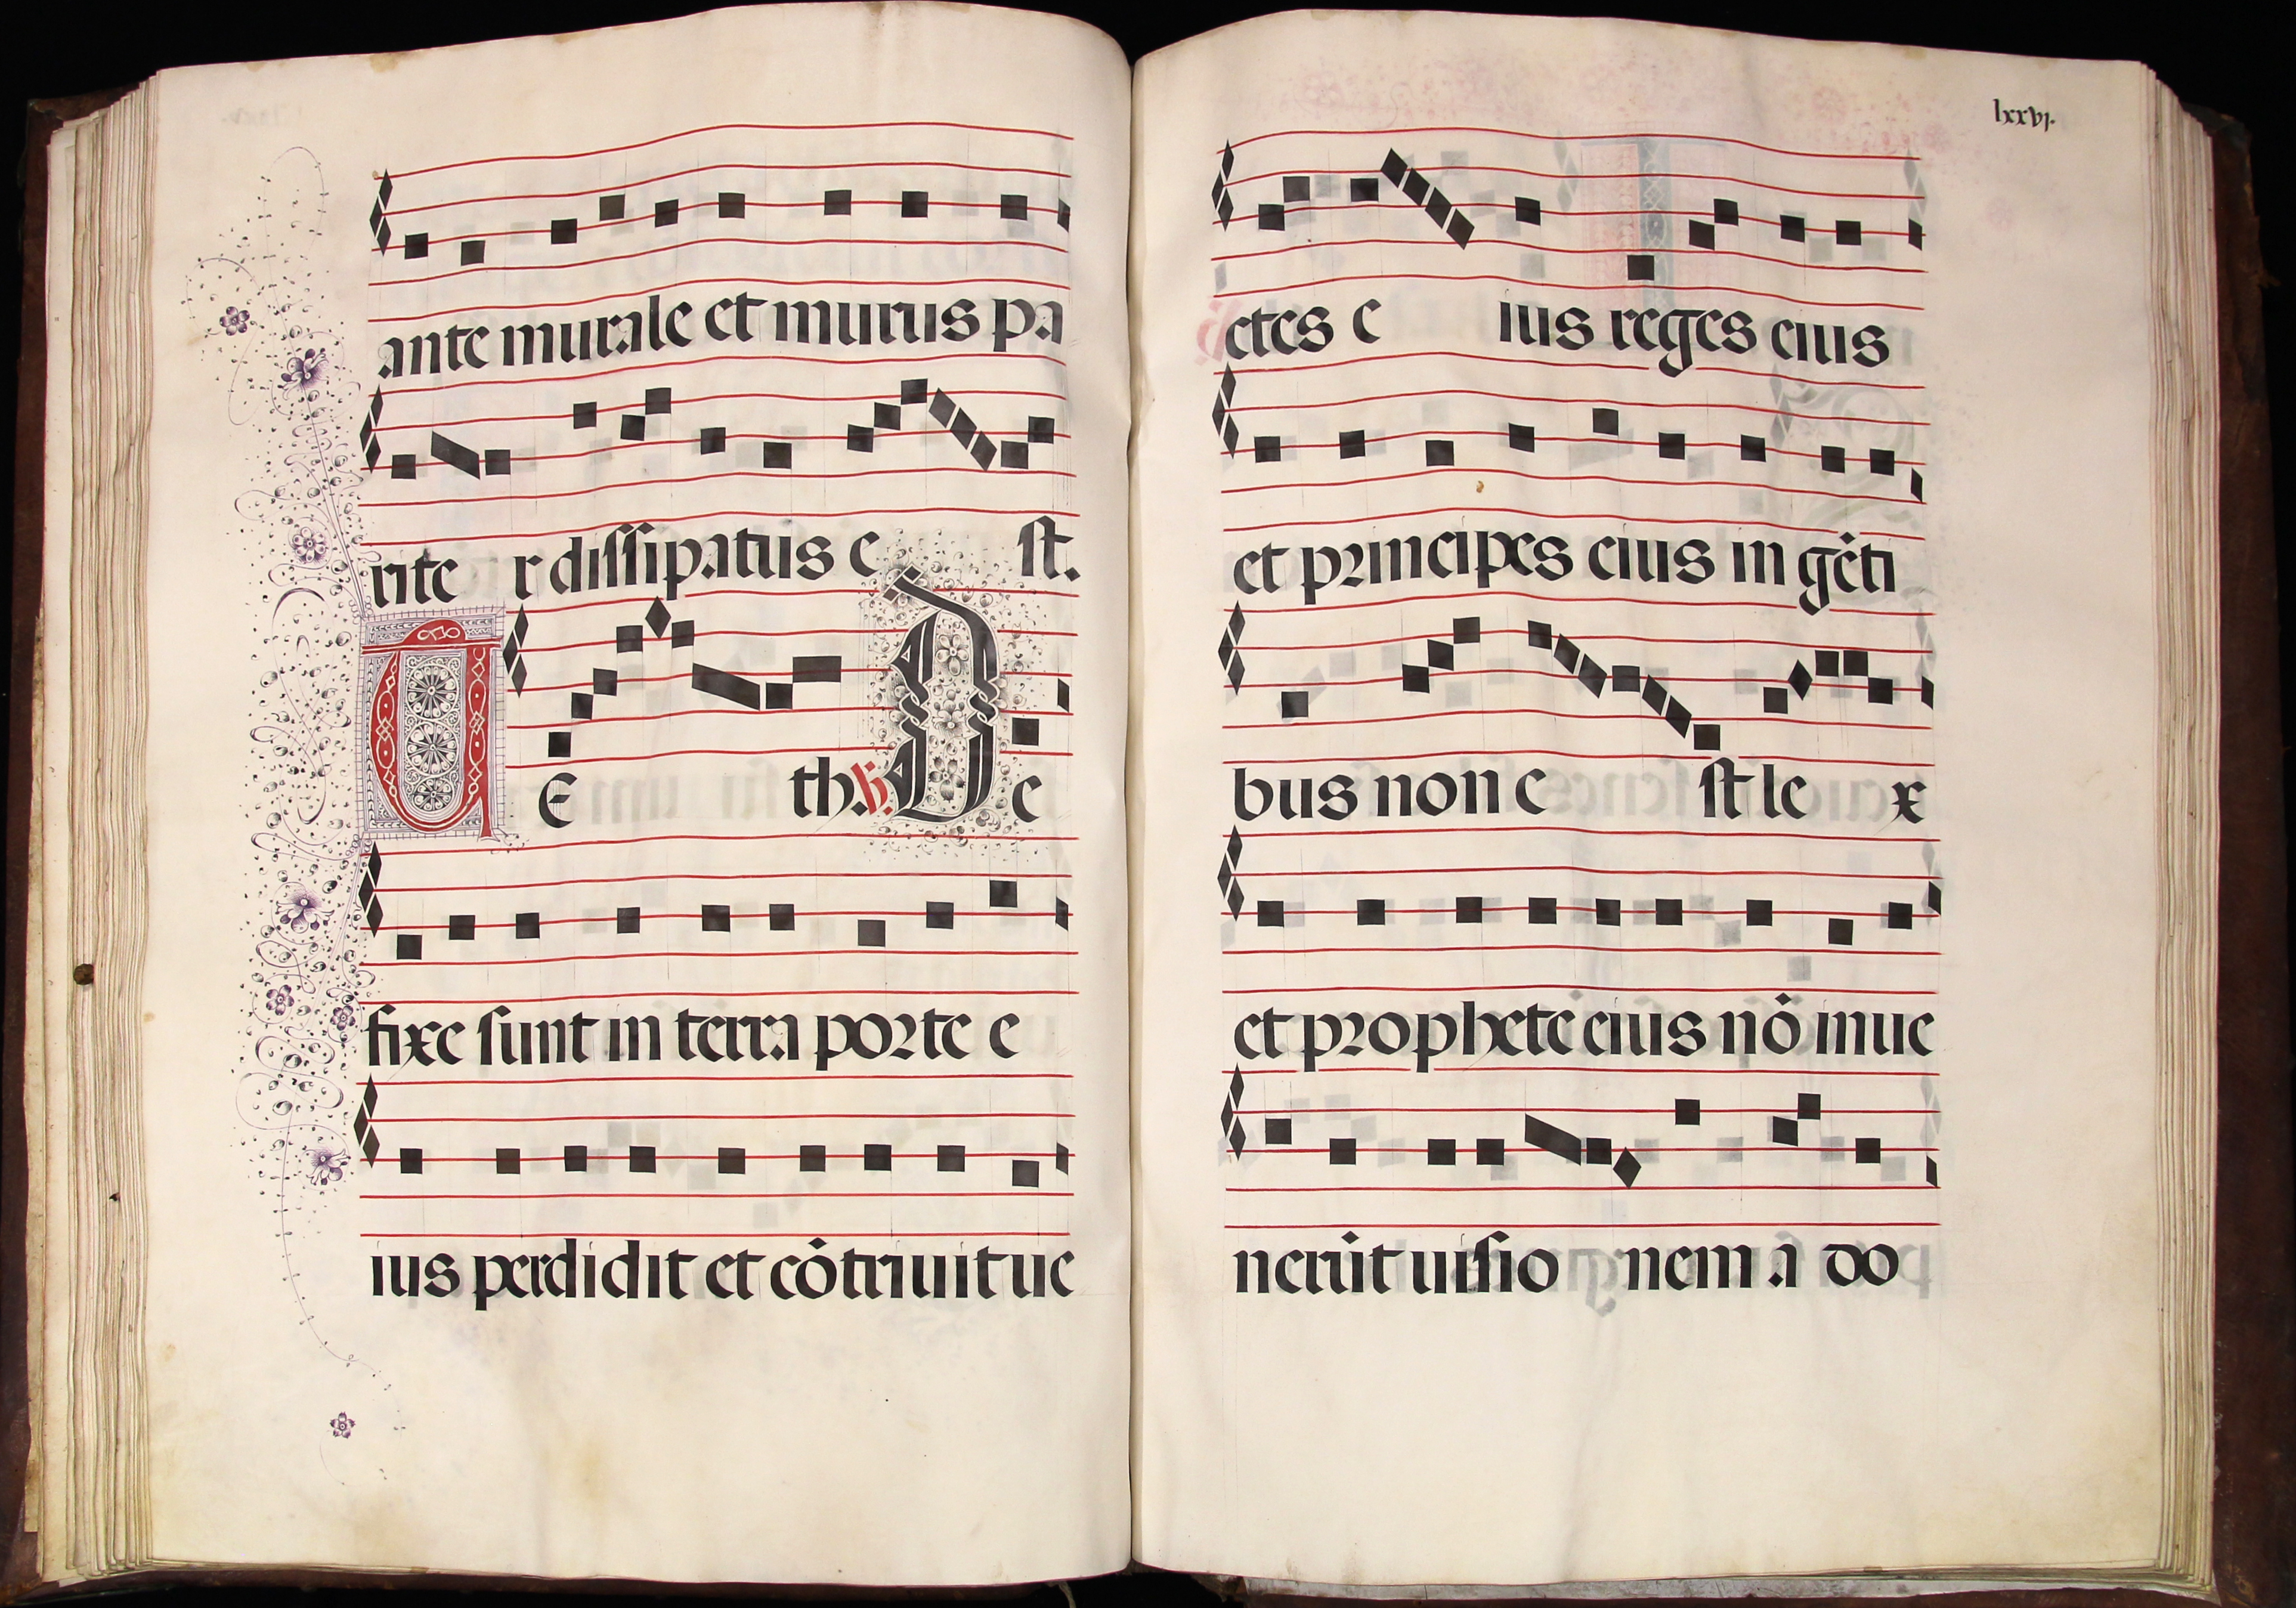 ante murale et murus pa
rite r dissipatus e st.
TE th. h. De
fixe sunt in terra porte e
ius perdidit et cōtriuit ue
lxxvj.
ctes e ius reges eius
et principes eius in gēti
bus non e st le x
et prophete eius nō inue
nerūt uisio nem a do